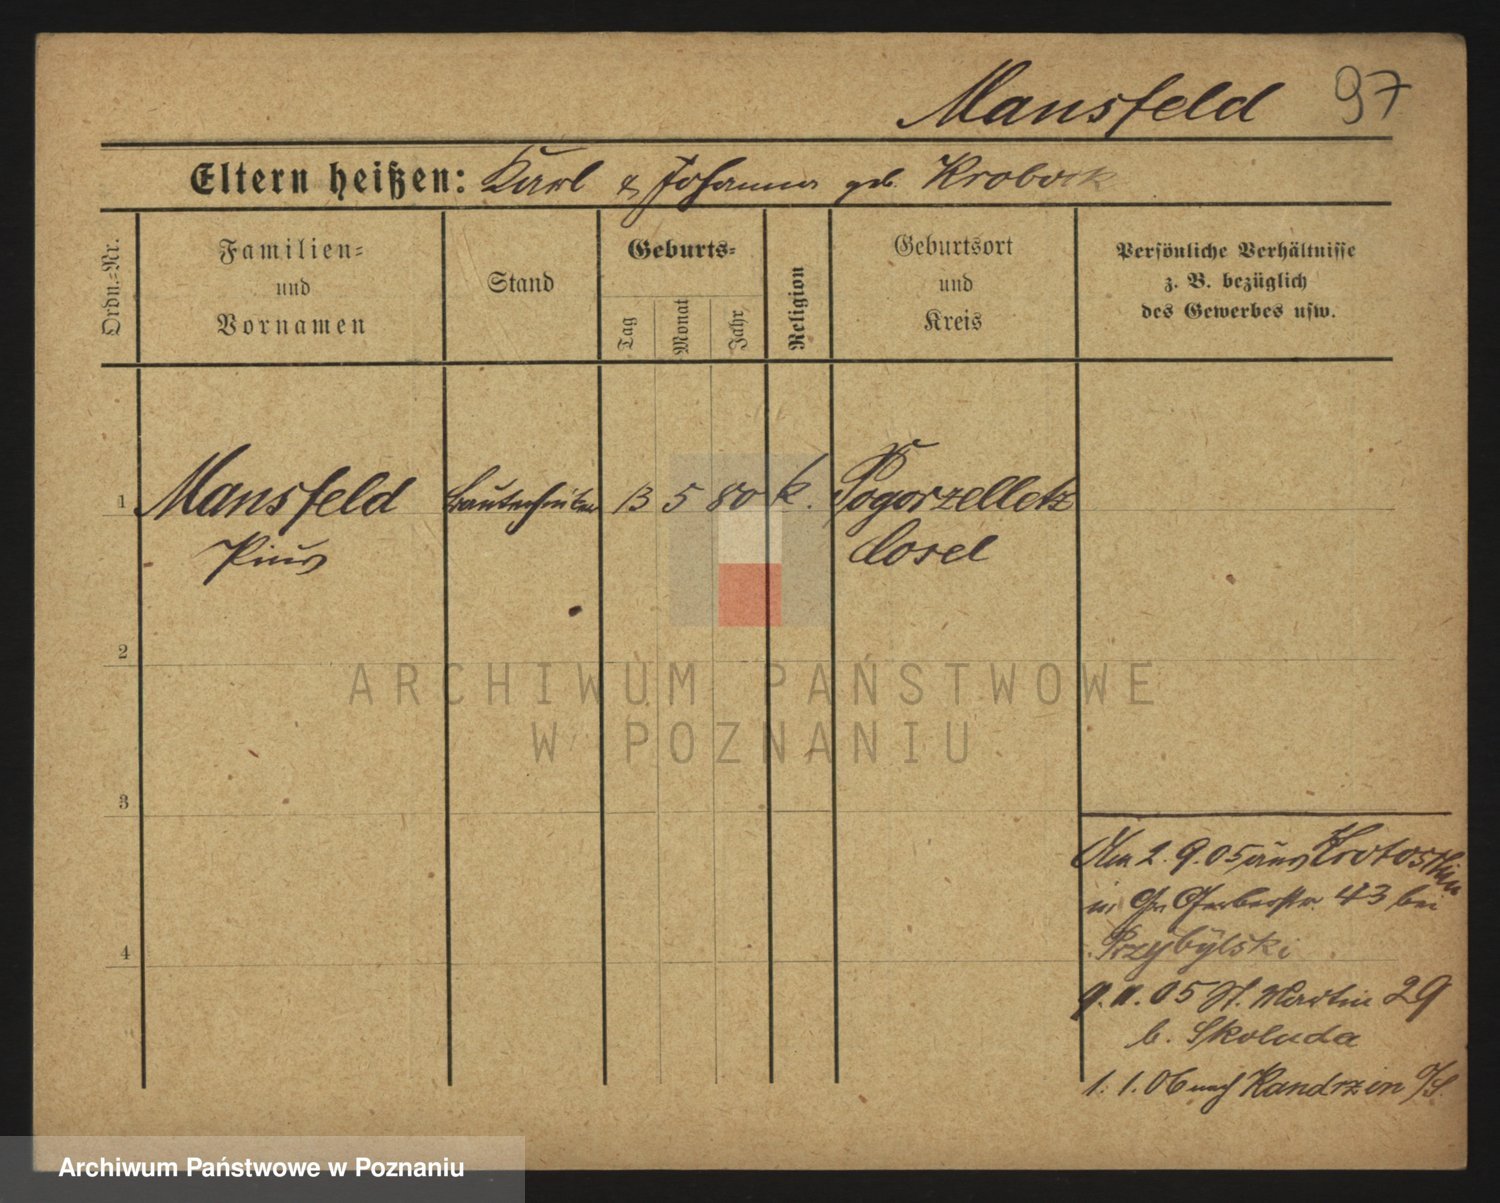 Mansfeld 97
Eltern heißen: Karl & Johanna geb. Krobock
Ordn.-Nr.
Familien-
und
Vornamen
Stand
Geburts-
Tag
Monat
Jahr
Religion
Geburtsort
und
Kreis
Persönliche Verhältnisse
z. B. bezüglich
des Gewerbes usw.
1 Mansfeld Bautechniker 13 5 80 k. Pogorzelletz
Pius Cosel
2
3
4
ARCHIWUM PAŃSTWOWE
W POZNANIU
2. 9. 05 aus Krotoschin
Gr Gerberstr. 43 bei
Przybÿlski
9. 11. 05 St. Martin 29
b. Skoluda
1. 1. 06 nach Kandrzin O/S.
Archiwum Państwowe w Poznaniu